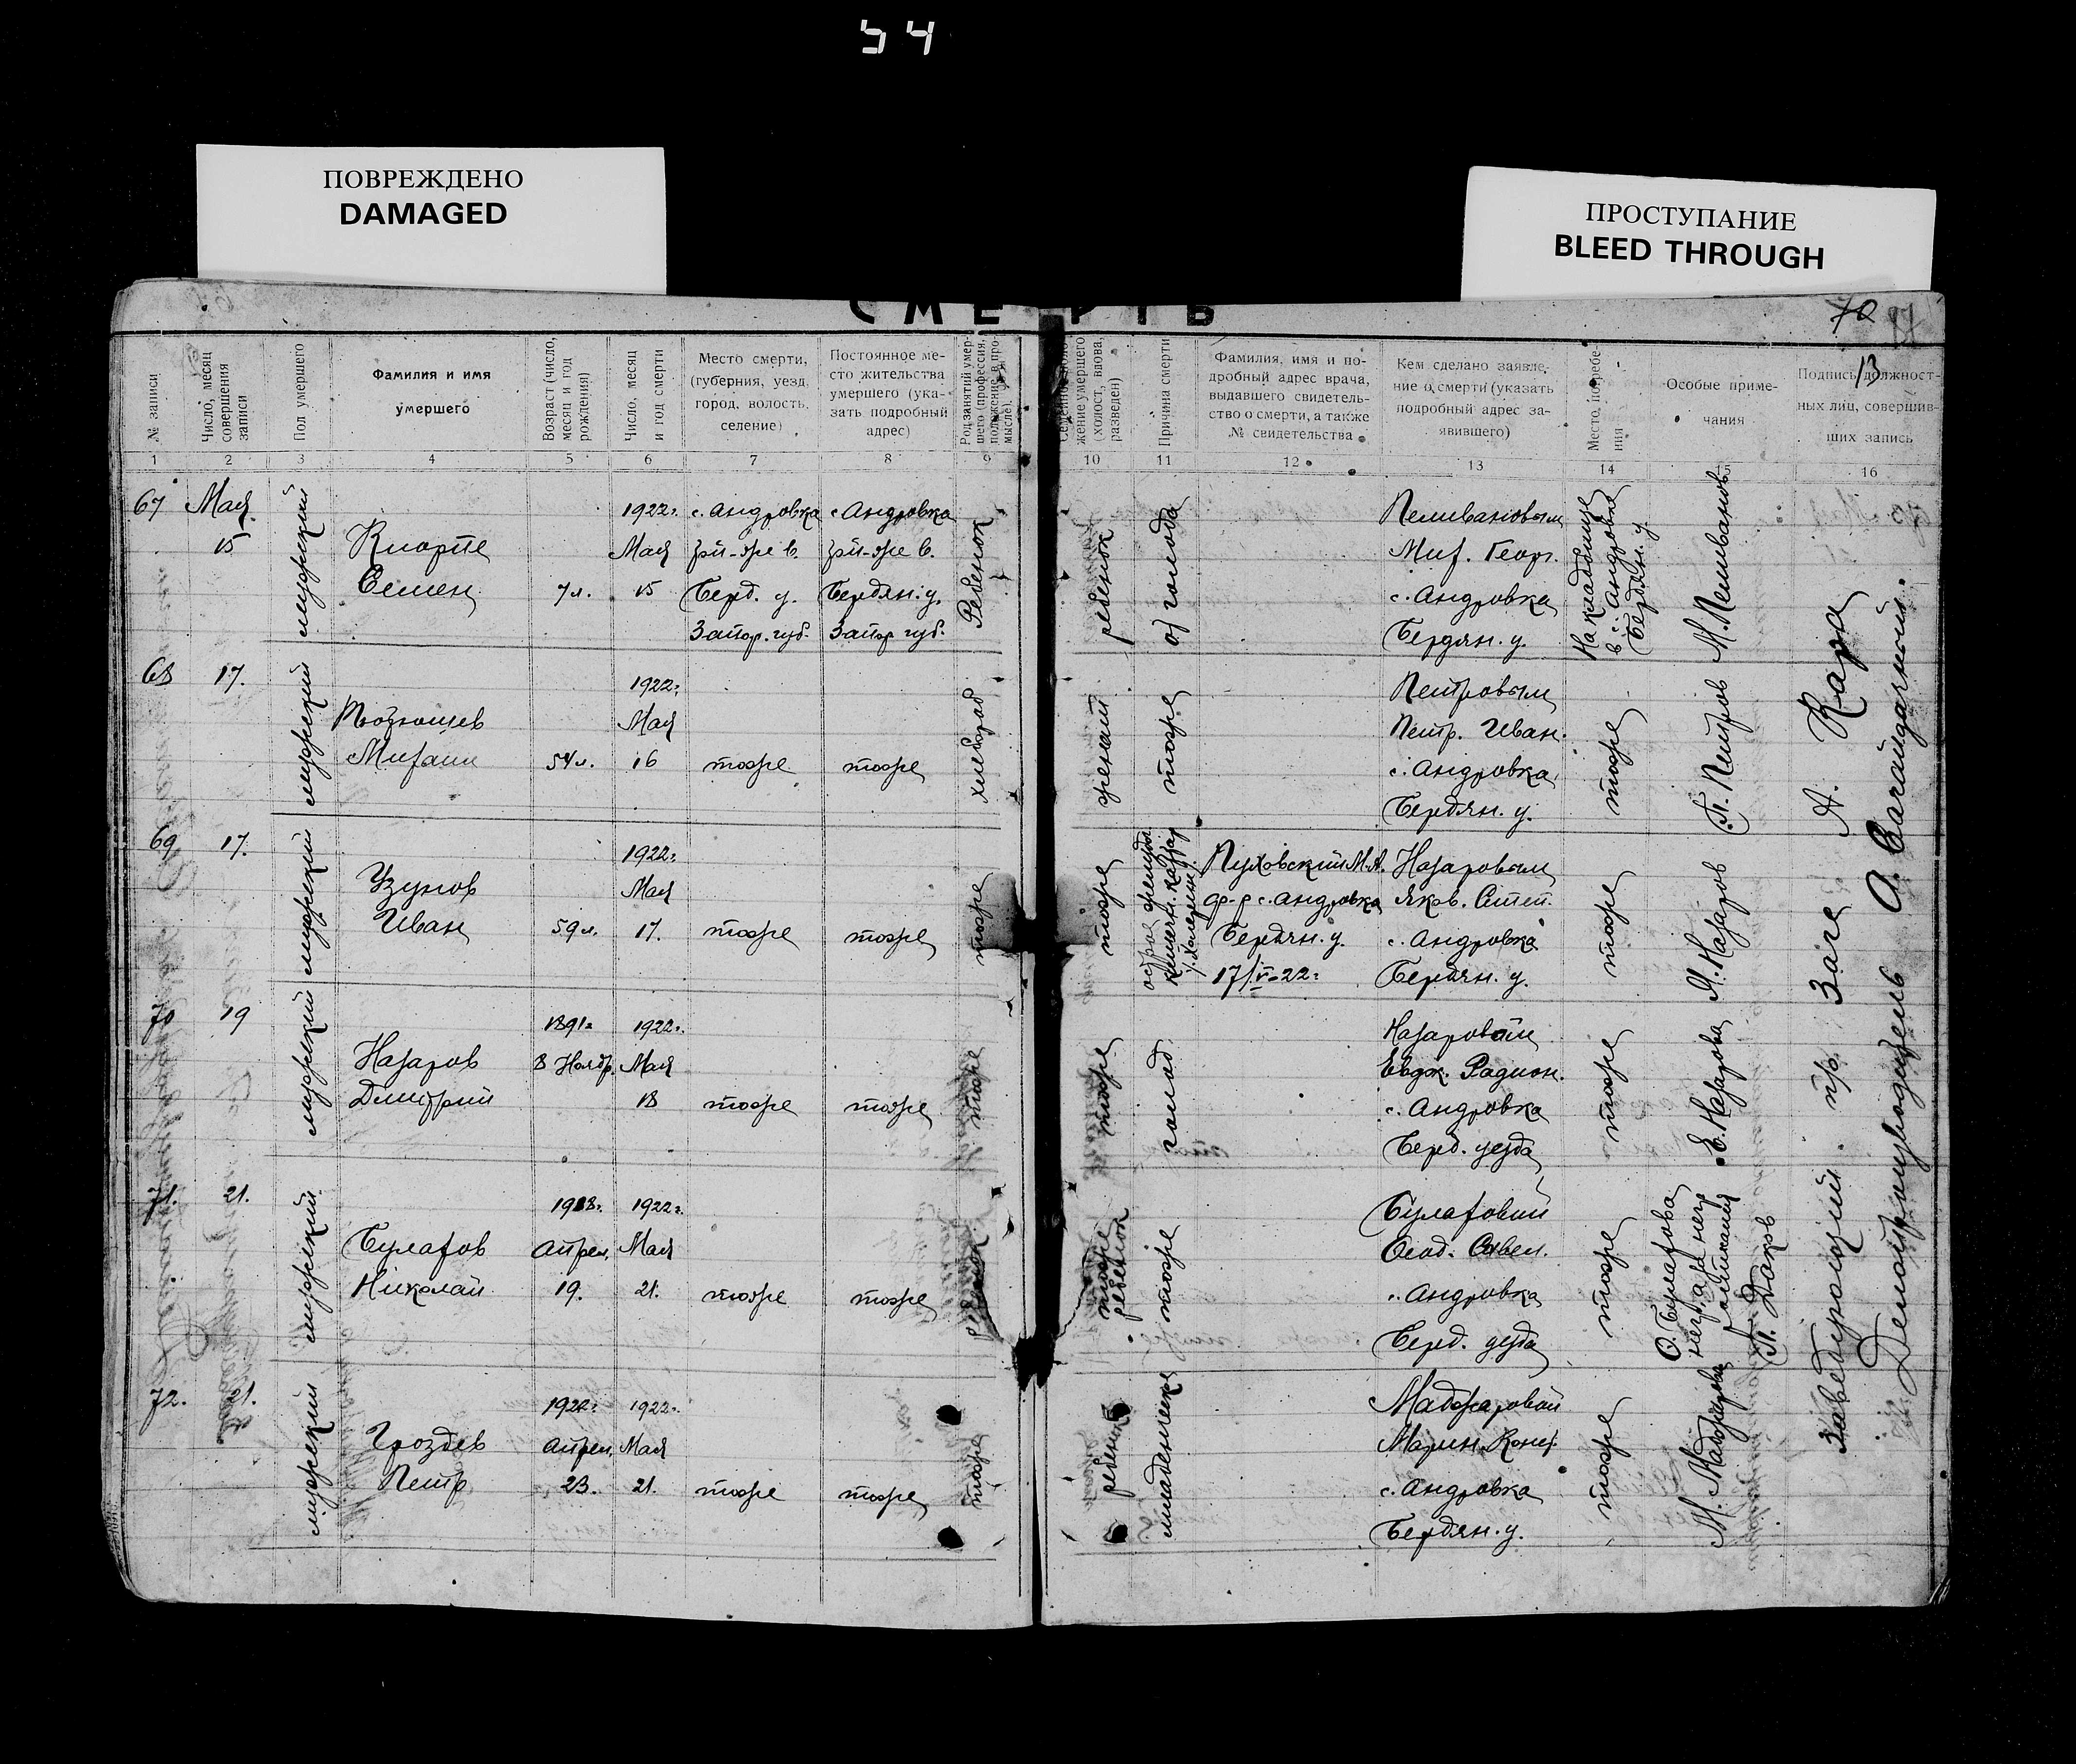 54
ПОВРЕЖДЕНО
DAMAGED
ПРОСТУПАНИЕ
BLEED THROUGH
СМЕРТЬ
70
13
№ записи
Число, месяц совершения записи
Пол умершего
Фамилия и имя
умершего
Возраст (число, месяц и год рождения)
Число, месяц и год смерти
Место смерти,
(губерния, уезд,
город, волость,
селение)
Постоянное ме-
сто жительства
умершего (ука-
зать подробный
адрес)
Род занятий умер-
шего (профессия,
положение в про-
мысле).
жение умершего
(холост, вдова,
разведен)
Причина смерти
Фамилия, имя и по-
дробный адрес врача,
выдавшего свидетель-
ство о смерти, а также
№ свидетельства
Кем сделано заявле-
ние о смерти (указать
подробный адрес за-
явившего)
Место погребе-
ния
Особые приме-
чания
Подпись должност-
ных лиц, совершив-
ших запись
1 2 3 4 5 6 7 8 9 10 11 12 13 14 15 16
67 Мая
15
мужский
Семен
7 л.
1922г.
Мая
15
с. Андровка
Берд. у.
Запор. губ.
с. Андровка
Бердян. у.
Запор. губ.
Ребенок
ребенок
от голода
Пеливановым
Мих. Георг.
с. Андровка
Бердян. у.
На кладбище
в с. Андровка
Бердян. у.
М. Пеливанов
68
17.
мужский
Михаил
54 л.
1922г.
Мая
16
тоже
тоже
хлебороб
женат
тоже
Петровым
Петр. Иван.
с. Андровка
Бердян. у.
тоже
П. Петров
69
17.
мужский
Узунов
Иван
59 л.
1922г.
Мая
17.
тоже
тоже
тоже
тоже
Пуховский М.А.
с. Андровка
Бердян. у.
17/V-22г.
Назаровым
Яков. Степ.
с. Андровка
Бердян. у.
тоже
Я. Назаров
70
19
мужский
Назаров
Дмитрий
1891г.
8 Ноябр.
1922г.
Мая
18
тоже
тоже
тоже
тоже
голод
Назаровой
Евдок. Радион.
с. Андровка
Берд. уезда
тоже
Е. Назарова
71.
21.
мужский
Булахов
Николай
Апрел.
19.
1922г.
Мая
21.
тоже
тоже
ребенок
тоже
ребенок
тоже
Булаховой
с. Андровка
Берд. уезда
тоже
О. Булахова
неграм. а за нее
П. Даков
72.
21.
мужский
Гроздев
Петр
1922г.
Апрел.
23.
1922г.
Мая
21.
тоже
тоже
тоже
ребенок
Маджаровой
Марин. Конст.
с. Андровка
Бердян. у.
тоже
М. Маджарова
Заведующий п/о Загс А. Кара
Делопроизводитель А. Сагайдачный.